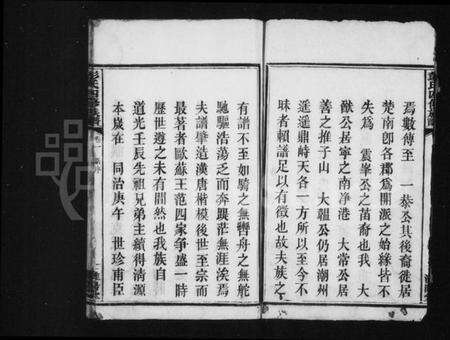 焉數傳至　一恭公其後裔徙居
楚南卽各郡爲開派之始終皆不
失爲　雲峯公之苗裔也我　大
猷公居寧之南淨港　大常公居
善之推子山　大韞公仍居潮州
遥遥鼎峙天各一方所以至今不
昧者賴譜足以有徵也故夫族之
有譜不至如騎之無轡舟之無舵
馳驅浩蕩乏而奔蹶茫無涯涘焉
夫譜肇造漢唐楷模後世至宗而
最著者歐蘇王范四家爭盛一時
歷世遵之未有間然也我族自
道光壬辰先祖兄弟主續得清源
本歲在　同治庚午　世珍甫臣